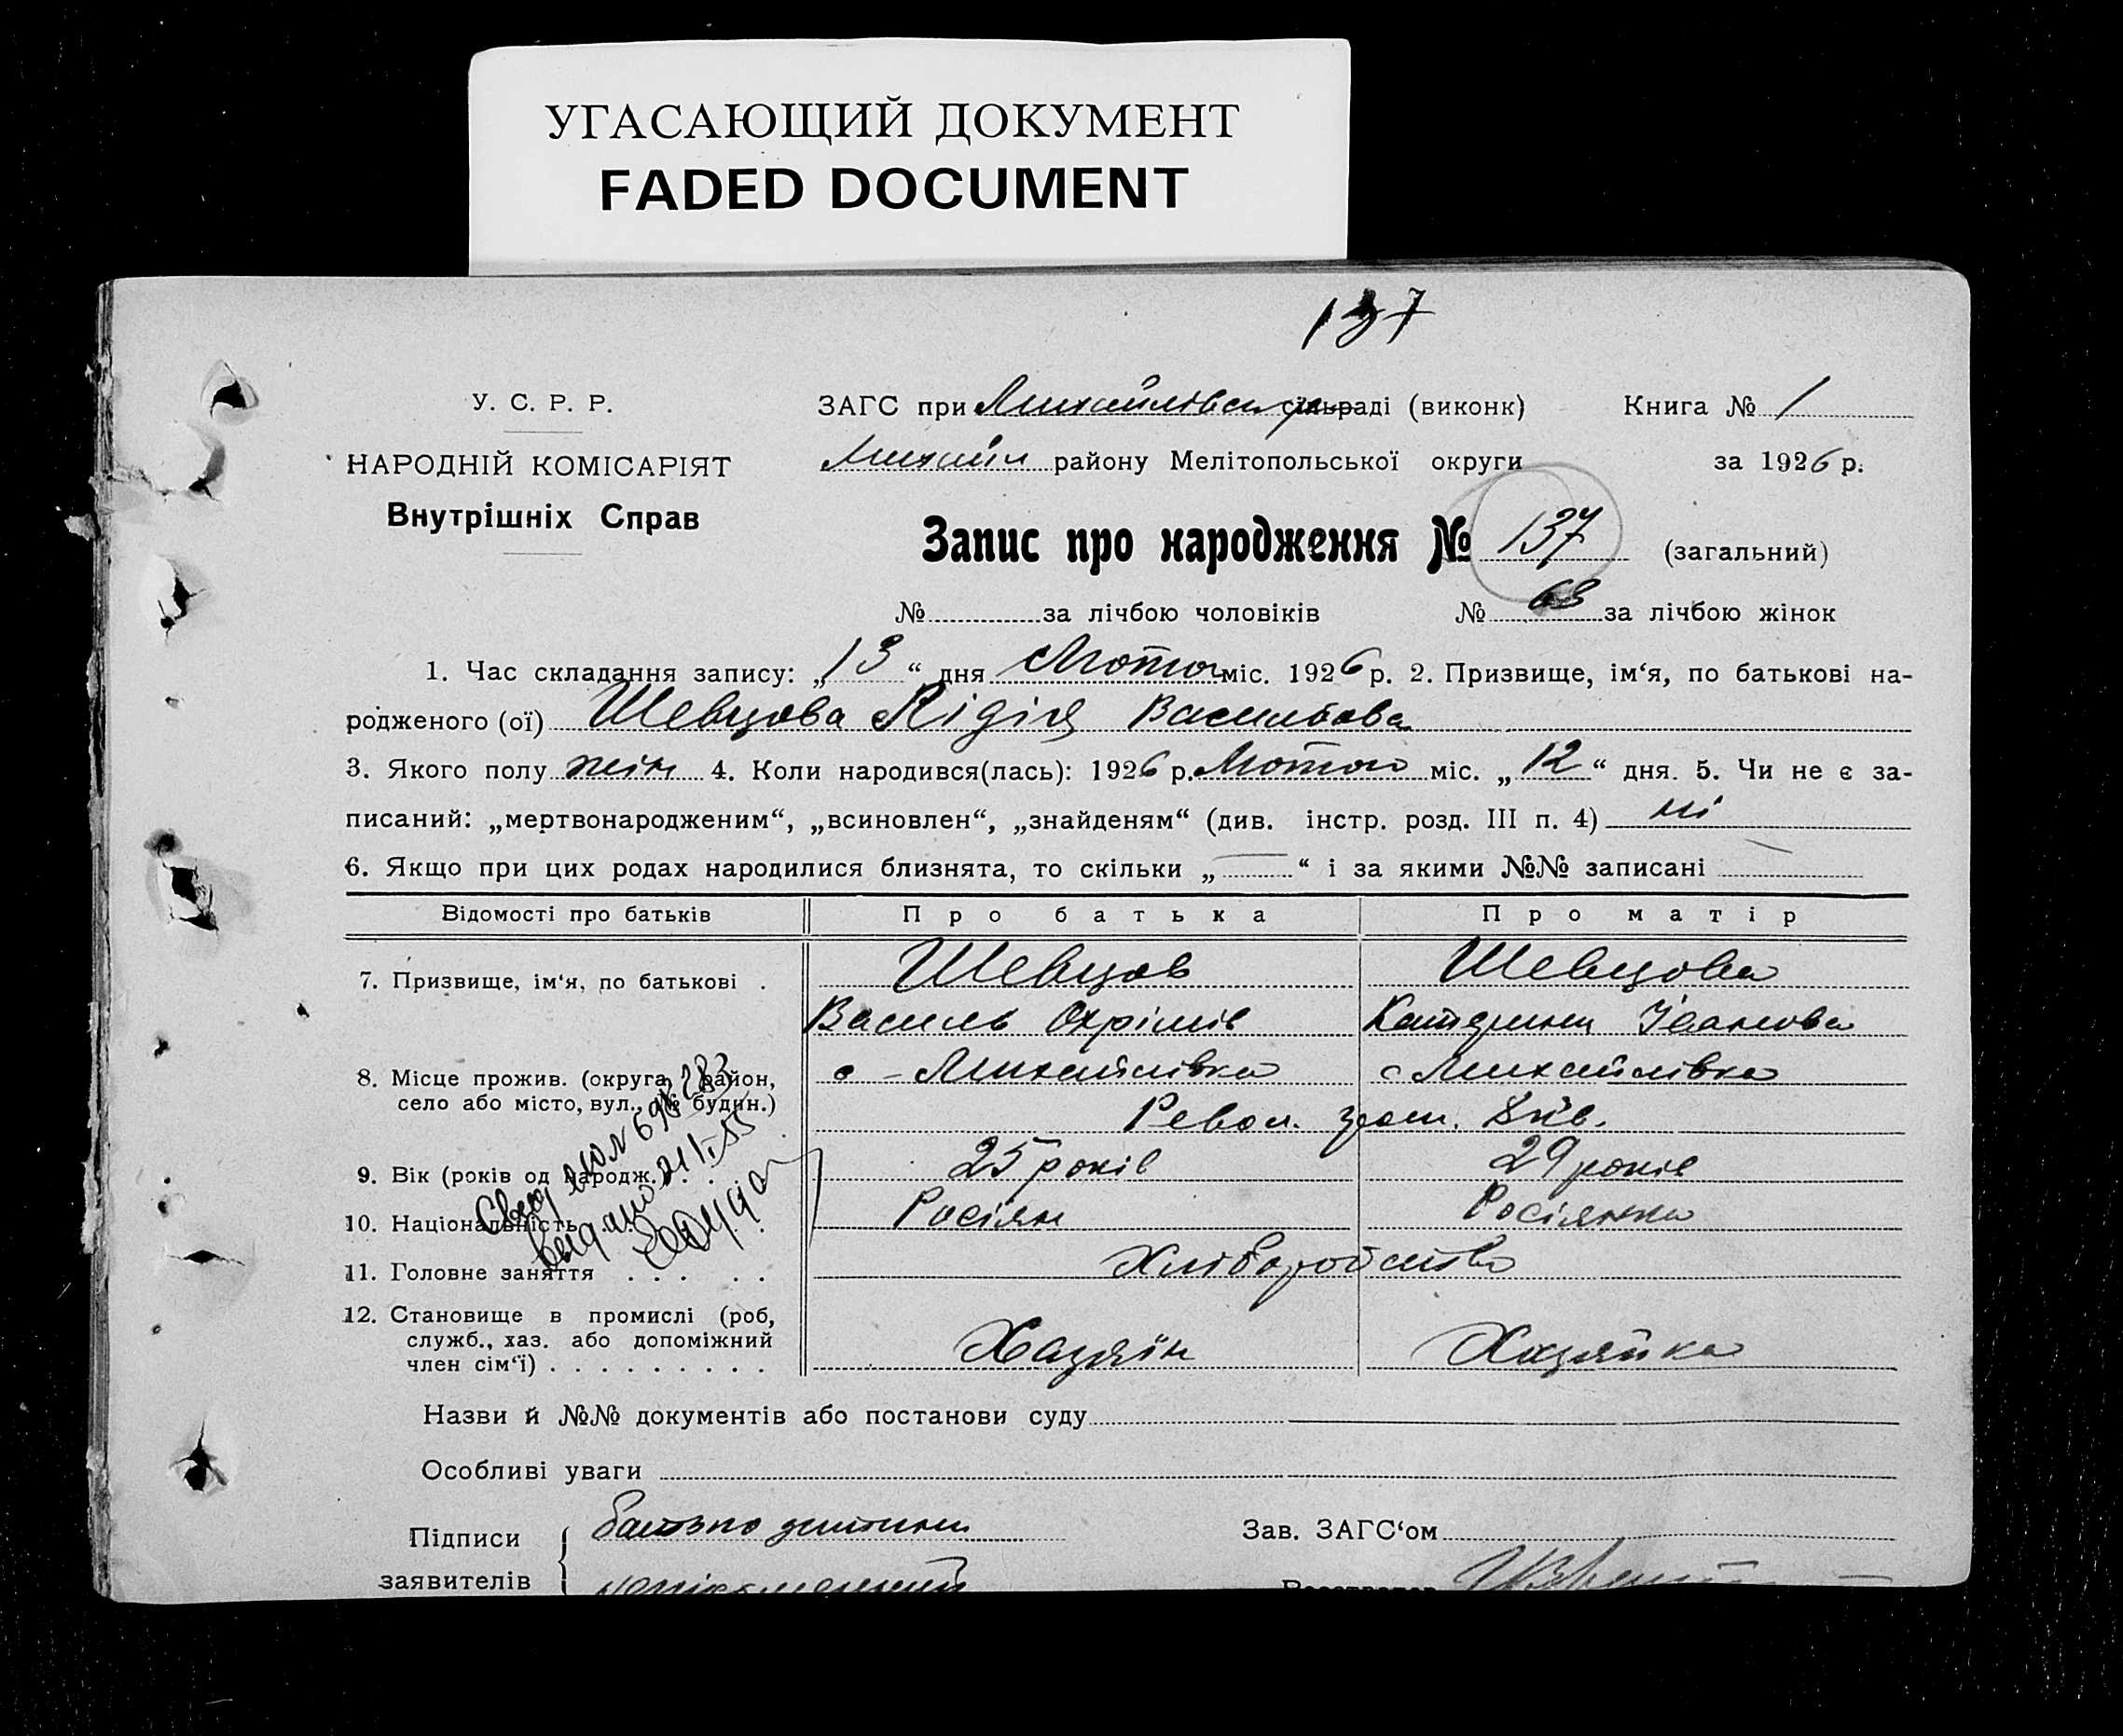 УГАСАЮЩИЙ ДОКУМЕНТ
FADED DOCUMENT
137
У. С. Р. Р.
НАРОДНІЙ КОМІСАРІЯТ
Внутрішніх Справ
ЗАГС при Михайлівск р сільраді (виконк) Книга № 1
Михайл району Мелітопольської округи за 1926 р.
Запис про народження № 137 (загальний)
№ за лічбою чоловіків № 63 за лічбою жінок
1. Час складання запису: „13“ дня Лютого міс. 1926 р. 2. Призвище, ім‘я, по батькові на-
родженого (ої) Шевцова Лідія Васильова
3. Якого полу жін 4. Коли народився(лась): 1926 р. Лютого міс. „12“ дня. 5. Чи не є за-
писаний: „мертвонародженим“, „всиновлен“, „знайденям“ (див. інстр. розд. III п. 4) ні
6. Якщо при цих родах народилися близнята, то скільки „—“ і за якими №№ записані —
Відомості про батьків Про батька Про матір
7. Призвище, ім‘я, по батькові . Шевцов Шевцова
Василь Охрімів Катерина Іванова
8. Місце прожив. (округа, район, с - Михайлівка с Михайлівка
село або місто, вул., № будин.) Револ. 8 кв.
9. Вік (років од народж.) . . 25 років 29 років
10. Національність Росіян Росіянка
11. Головне заняття . . . . . Хліборобство
12. Становище в промислі (роб,
служб., хаз. або допоміжний Хазяїн Хазяйка
член сім‘ї) . . . . . . . . .
698283
видано
Назви й №№ документів або постанови суду
Особливі уваги
Підписи батько дитини Зав. ЗАГС‘ом
заявителів неписьменний